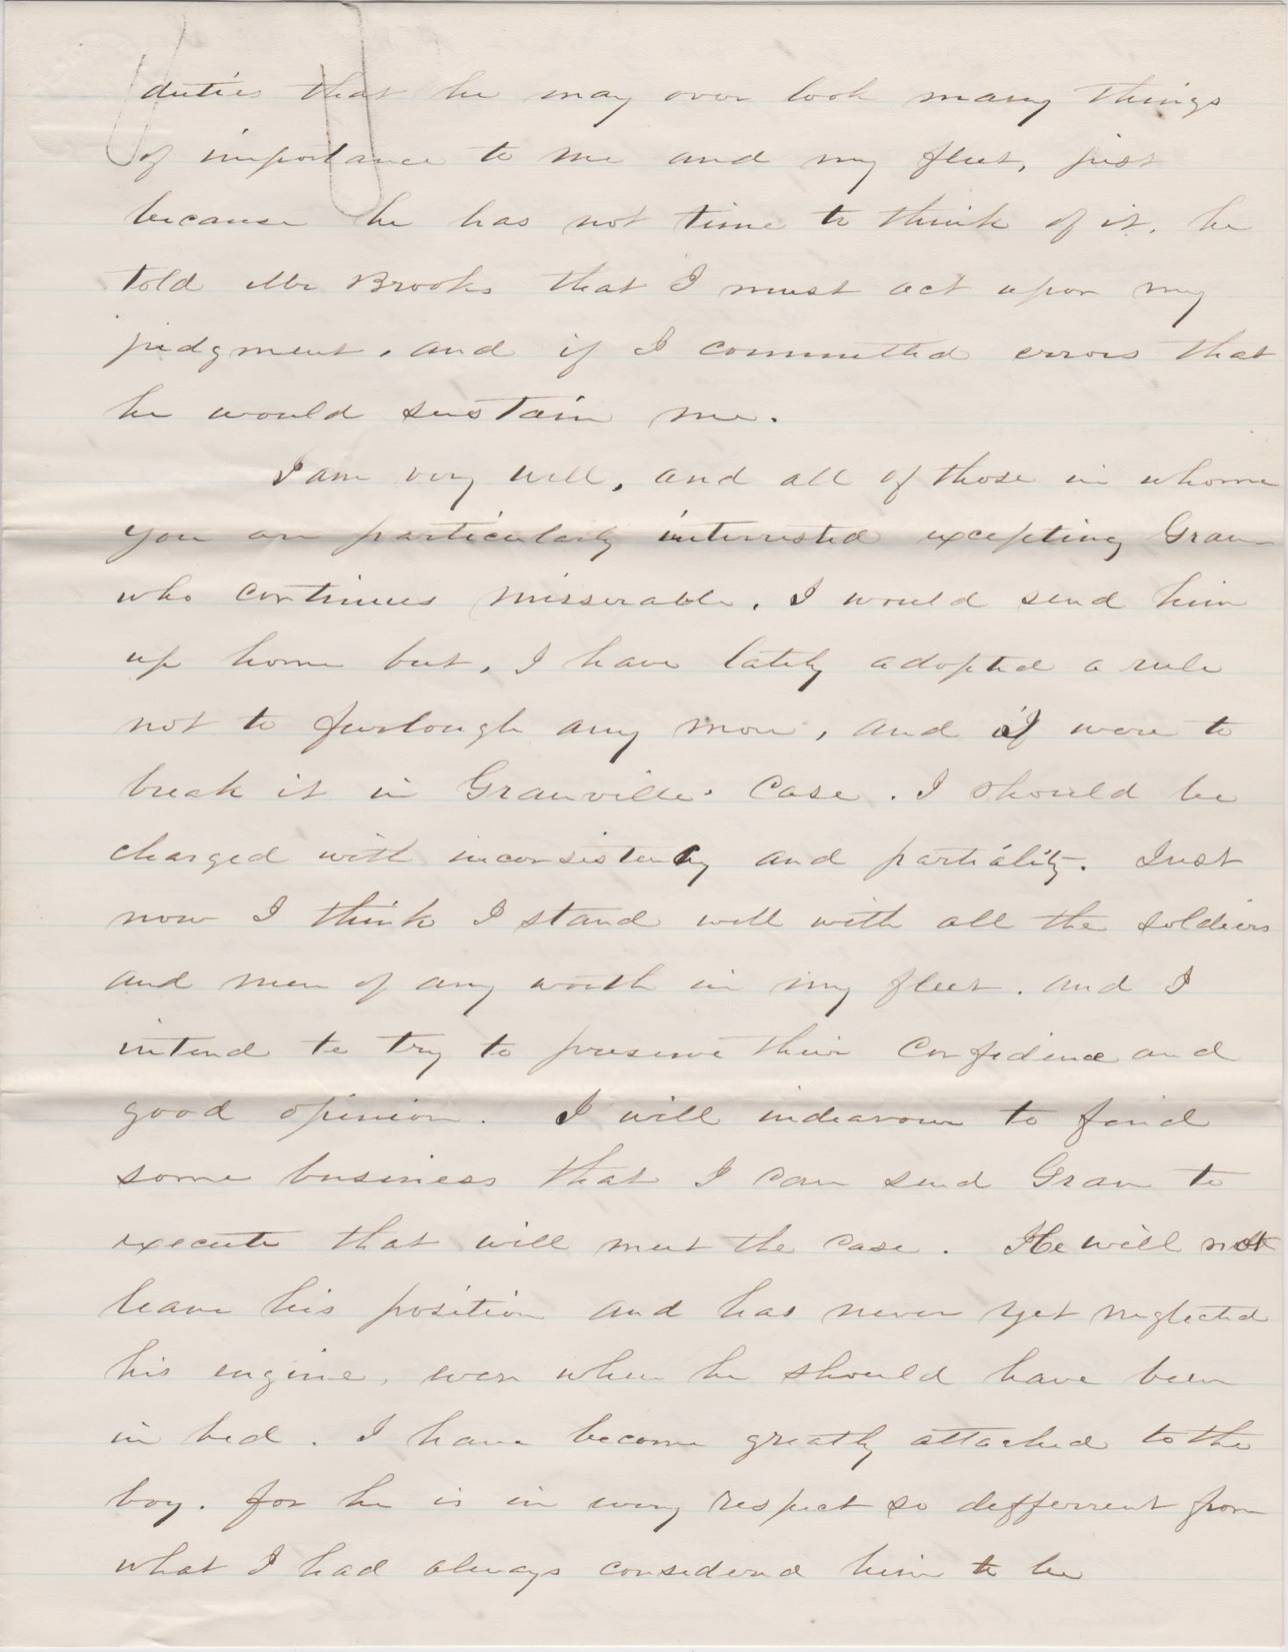 duties that he may over look many things
of importance to me and my fleet, just
because he has not time to think of it. he
told Mr Brooks that I must act upon my
judgment, and if I committed errors that
he would sustain me.
I am very well, and all of those in whome
you are particularly interrested excepting Gran
who continues misserable. I would send him
up home but, I have lately adopted a rule
not to furlough any more, and if I were to
break it in Granville's Case. I should be
charged with inconsistency and partiality. Just
now I think I stand well with all the soldiers
and men of any worth in my fleet. and I
intend to try to preserve their Confidence and
good opinion. I will indeavour to find
some business that I can send Gran to
execute that will meet the case. He will not
leave his position and has never yet neglected
his engine, even when he should have been
in bed. I have become greatly attached to the
boy. for he is in every respect so defferrent from
what I had always considerd him to be